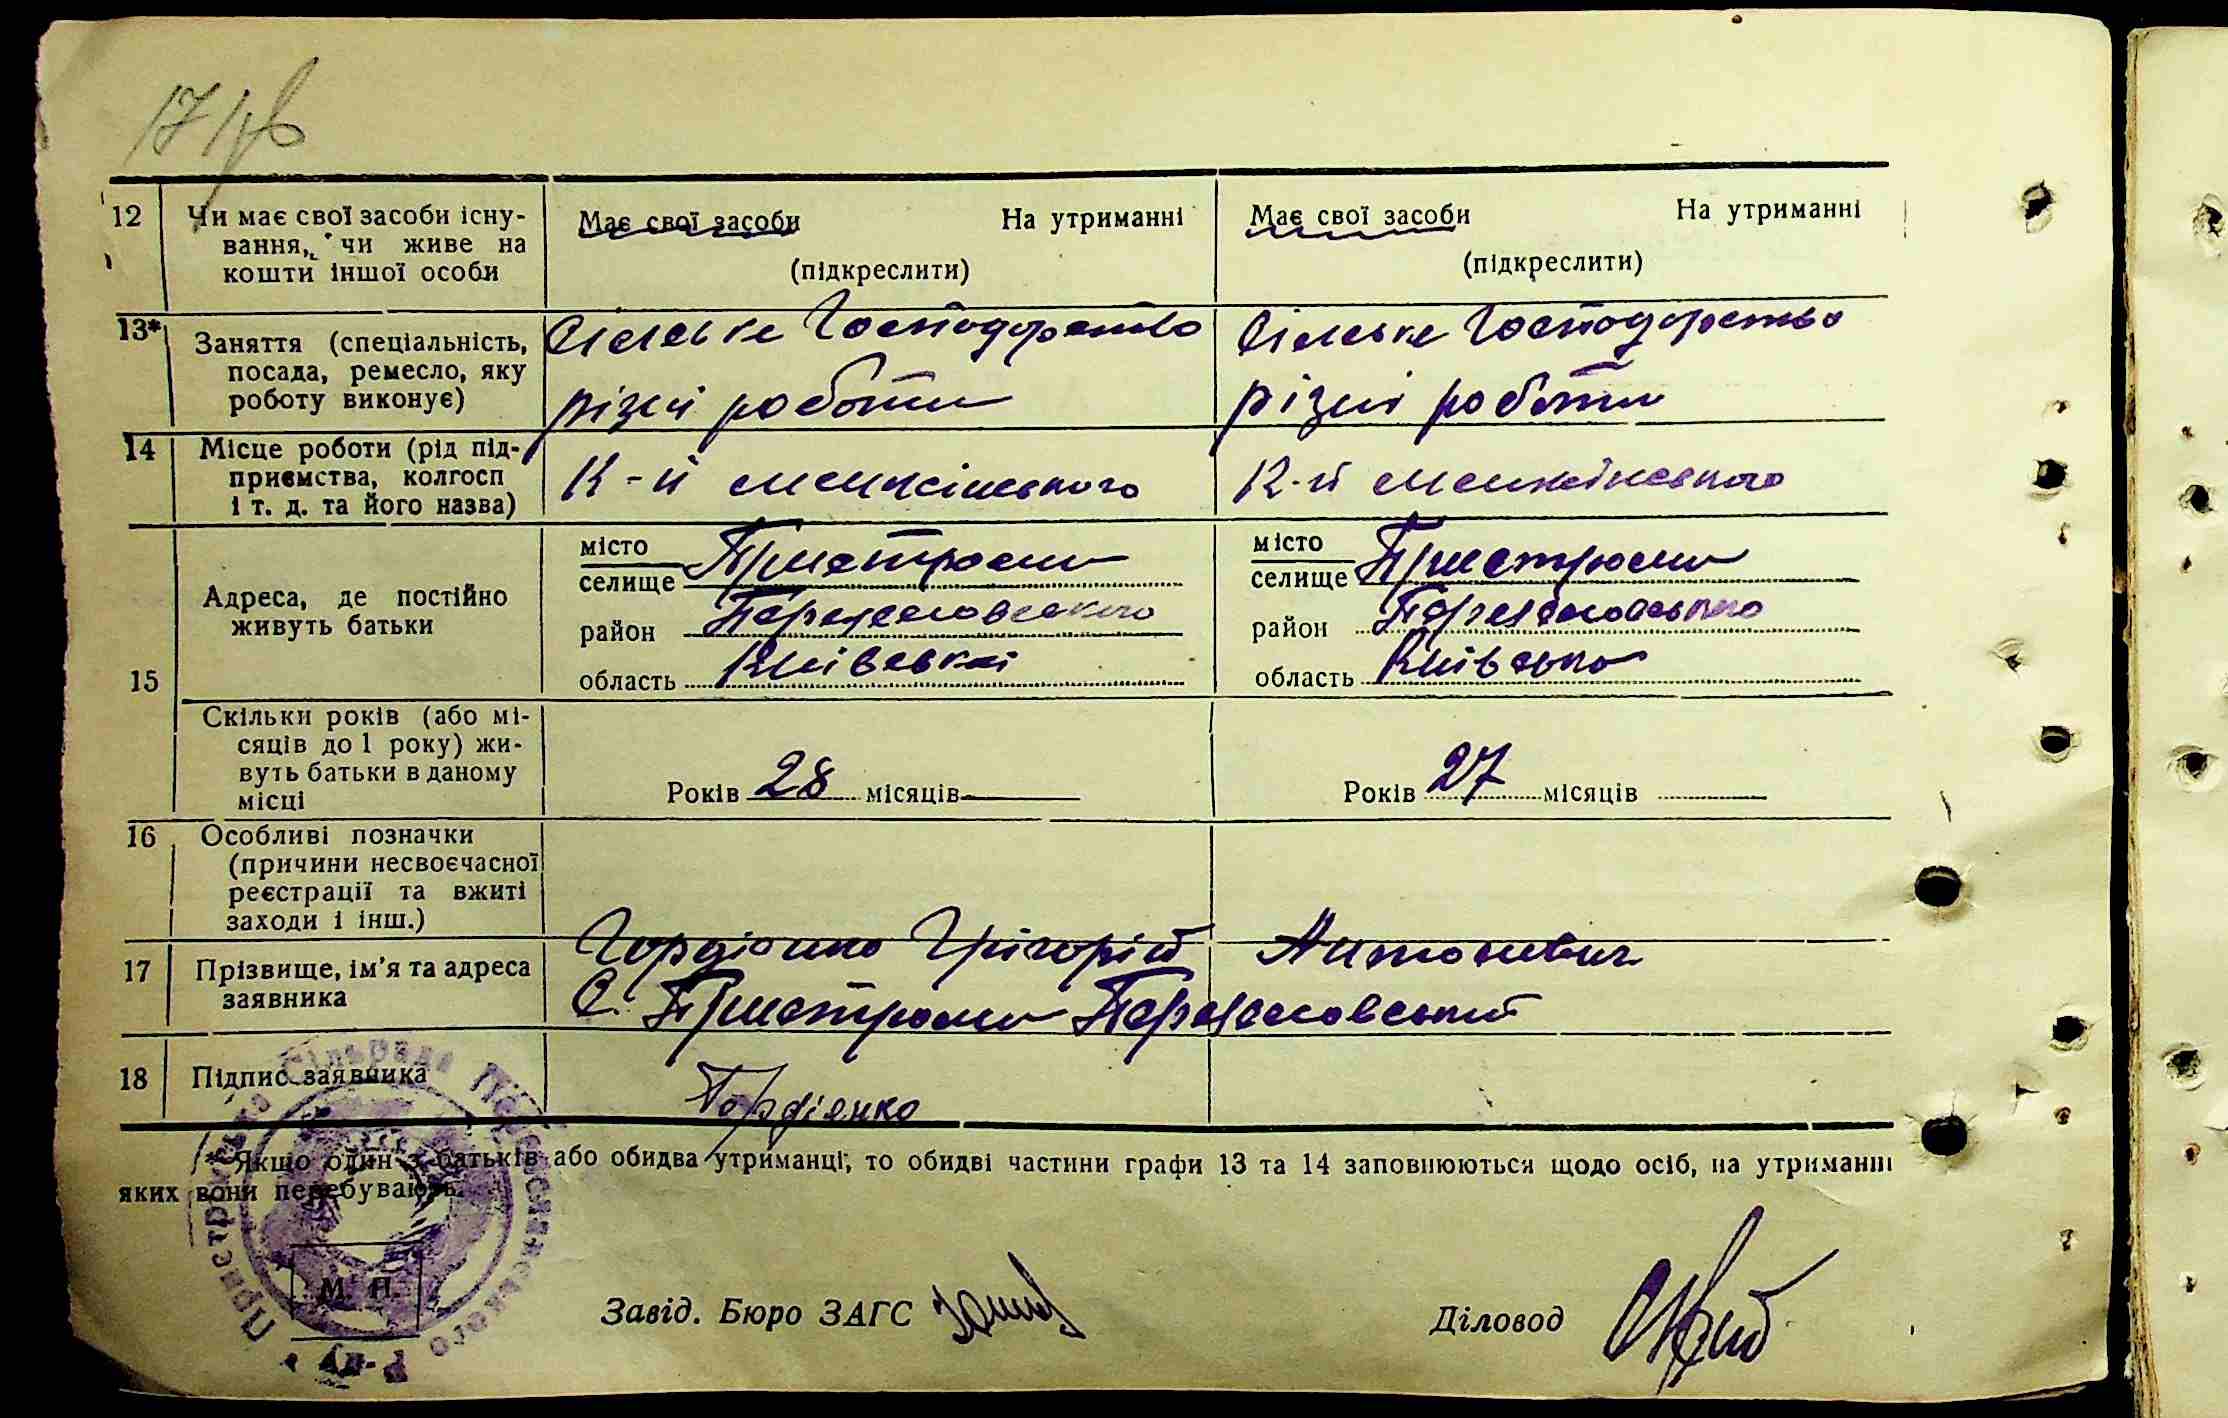 17 зв
12 Чи має свої засоби існу- Має свої засоби На утриманні Має свої засоби На утриманні
вання, чи живе на
кошти іншої особи (підкреслити) (підкреслити)
13* Заняття (спеціальність, Сільське Господарство Сільське Господарство
посада, ремесло, яку
роботу виконує) різні роботи різні роботи
14 Місце роботи (рід під-
приємства, колгосп К-й менжінського К-й менжінського
і т. д. та його назва)
15 Адреса, де постійно
живуть батьки
місто
селище Пристроми
район
область Київській
місто
селище Пристроми
район
область Київська
Скільки років (або мі-
сяців до 1 року) жи-
вуть батьки в даному
місці
Років 28 місяців Років 27 місяців
16 Особливі позначки
(причини несвоєчасної
реєстрації та вжиті
заходи і інш.)
17 Прізвище, ім'я та адреса Григорій Антонович
заявника С. Пристроми
18 Підпис заявника Гордієнко
* Якщо один з батьків або обидва утриманці, то обидві частини графи 13 та 14 заповнюються щодо осіб, на утриманні
яких вони перебувають.
М. П.
Завід. Бюро ЗАГС
Діловод